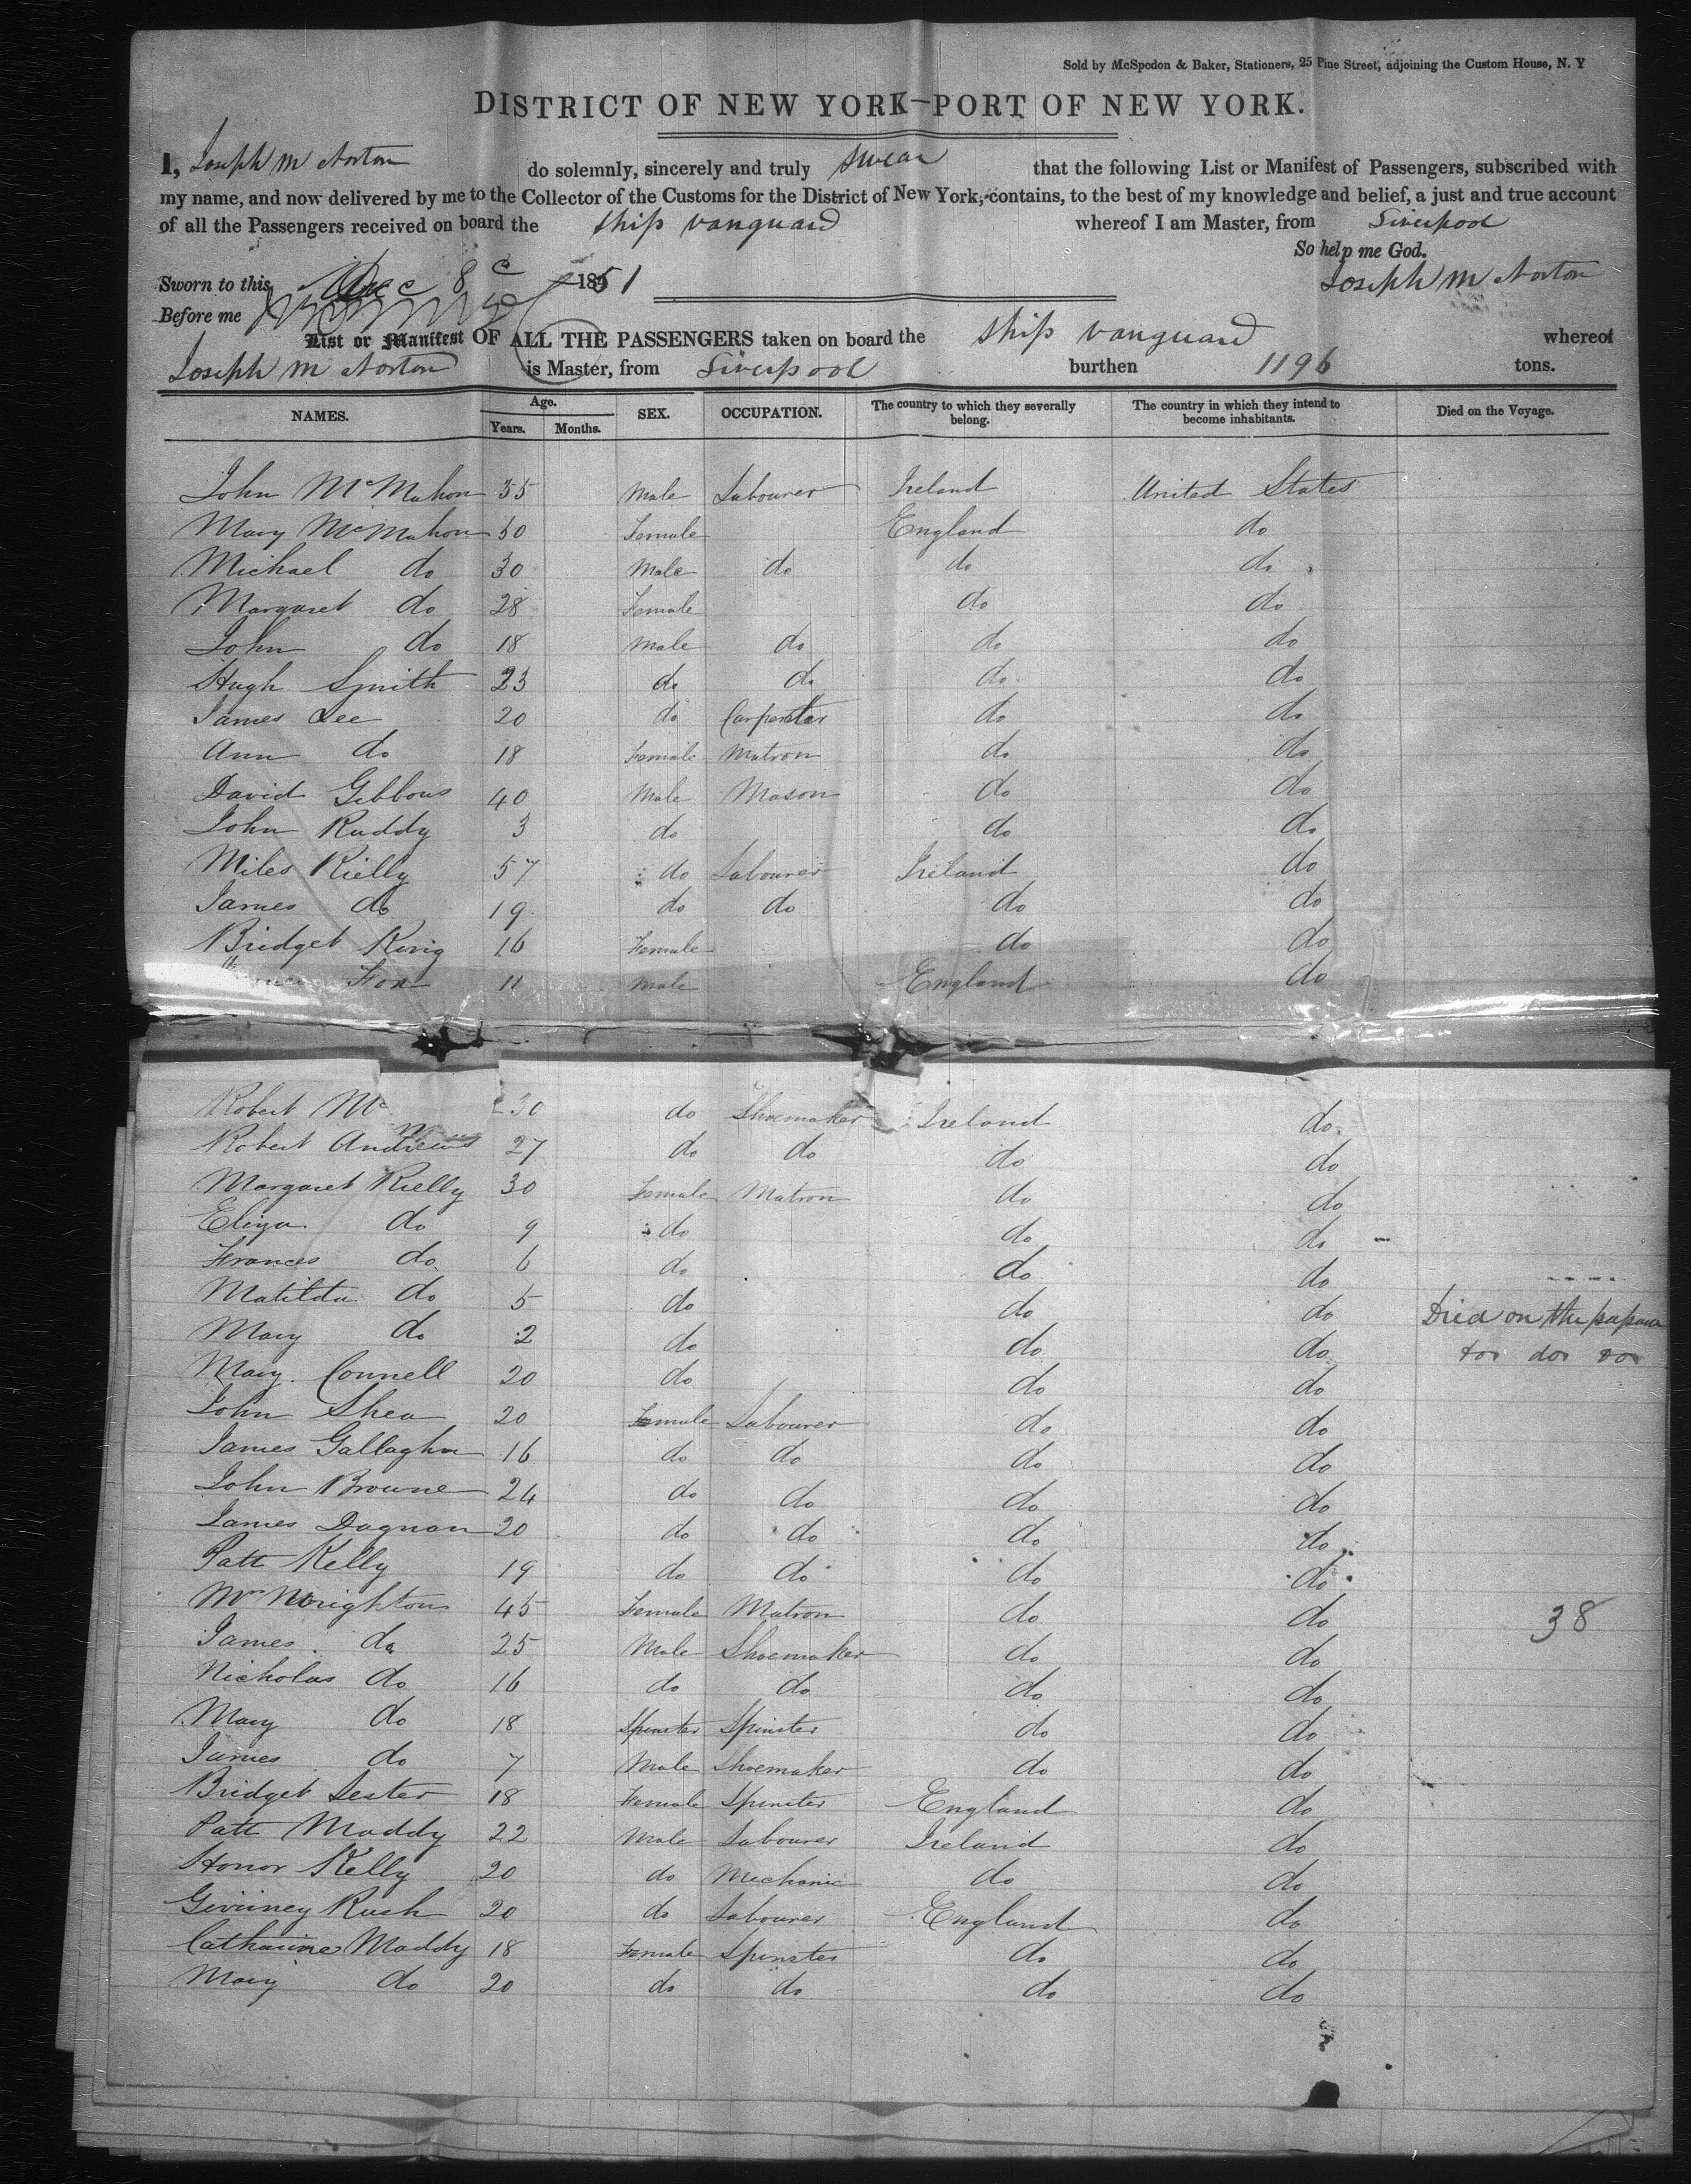 Sold by McSpedon & Baker, Stationers, 25 Pine Street, adjoining the Custom House, N. Y
DISTRICT OF NEW YORK—PORT OF NEW YORK.
I, Joseph M Norton do solemnly, sincerely and truly swear that the following List or Manifest of Passengers, subscribed with
my name, and now delivered by me to the Collector of the Customs for the District of New York, contains, to the best of my knowledge and belief, a just and true account
of all the Passengers received on board the ship vanguard whereof I am Master, from Liverpool
So help me God.
Sworn to this Dec 8 1851 Joseph M Norton
Before me
List or Manifest OF ALL THE PASSENGERS taken on board the ship vanguard whereof
Joseph M Norton is Master, from Liverpool burthen 1196 tons.
NAMES. Age. Years. Months. SEX. OCCUPATION. The country to which they severally belong. The country in which they intend to become inhabitants. Died on the Voyage.
John McMahon 55 Male Labourer Ireland United States
Mary McMahon 50 Female England do
Michael do 30 Male do do do
Margaret do 28 Female do do
John do 18 Male do do do
Hugh Smith 23 do do do do
James Lee 20 do Carpenter do do
Ann do 18 Female Matron do do
David Gibbons 40 Male Mason do do
John Ruddy 3 do do do
Miles Rielly 57 do Labourer Ireland do
James do 19 do do do do
Bridget King 16 Female do do
Fox 11 Male England do
Robert Mc 30 do Shoemaker Ireland do
Robert Andrews 27 do do do do
Margaret Rielly 30 Female Matron do do
Eliza do 9 do do do
Frances do 6 do do do
Matilda do 5 do do do Died on the passage
Mary do 2 do do do do do do
Mary Connell 20 do do do
John Shea 20 Female Labourer do do
James Gallagher 16 do do do do
John Browne 24 do do do do
James Dagnan 20 do do do do
Patt Kelly 19 do do do do
Mrs Wrightons 45 Female Matron do do 38
James do 25 Male Shoemaker do do
Nicholas do 16 do do do do
Mary do 18 Spinster Spinster do do
James do 7 Male Shoemaker do do
Bridget Lester 18 Female Spinster England do
Patt Maddy 22 Male Labourer Ireland do
Honor Kelly 20 do Mechanic do do
Rush 20 do Labourer England do
Catharine Maddy 18 Female Spinster do do
Mary do 20 do do do do